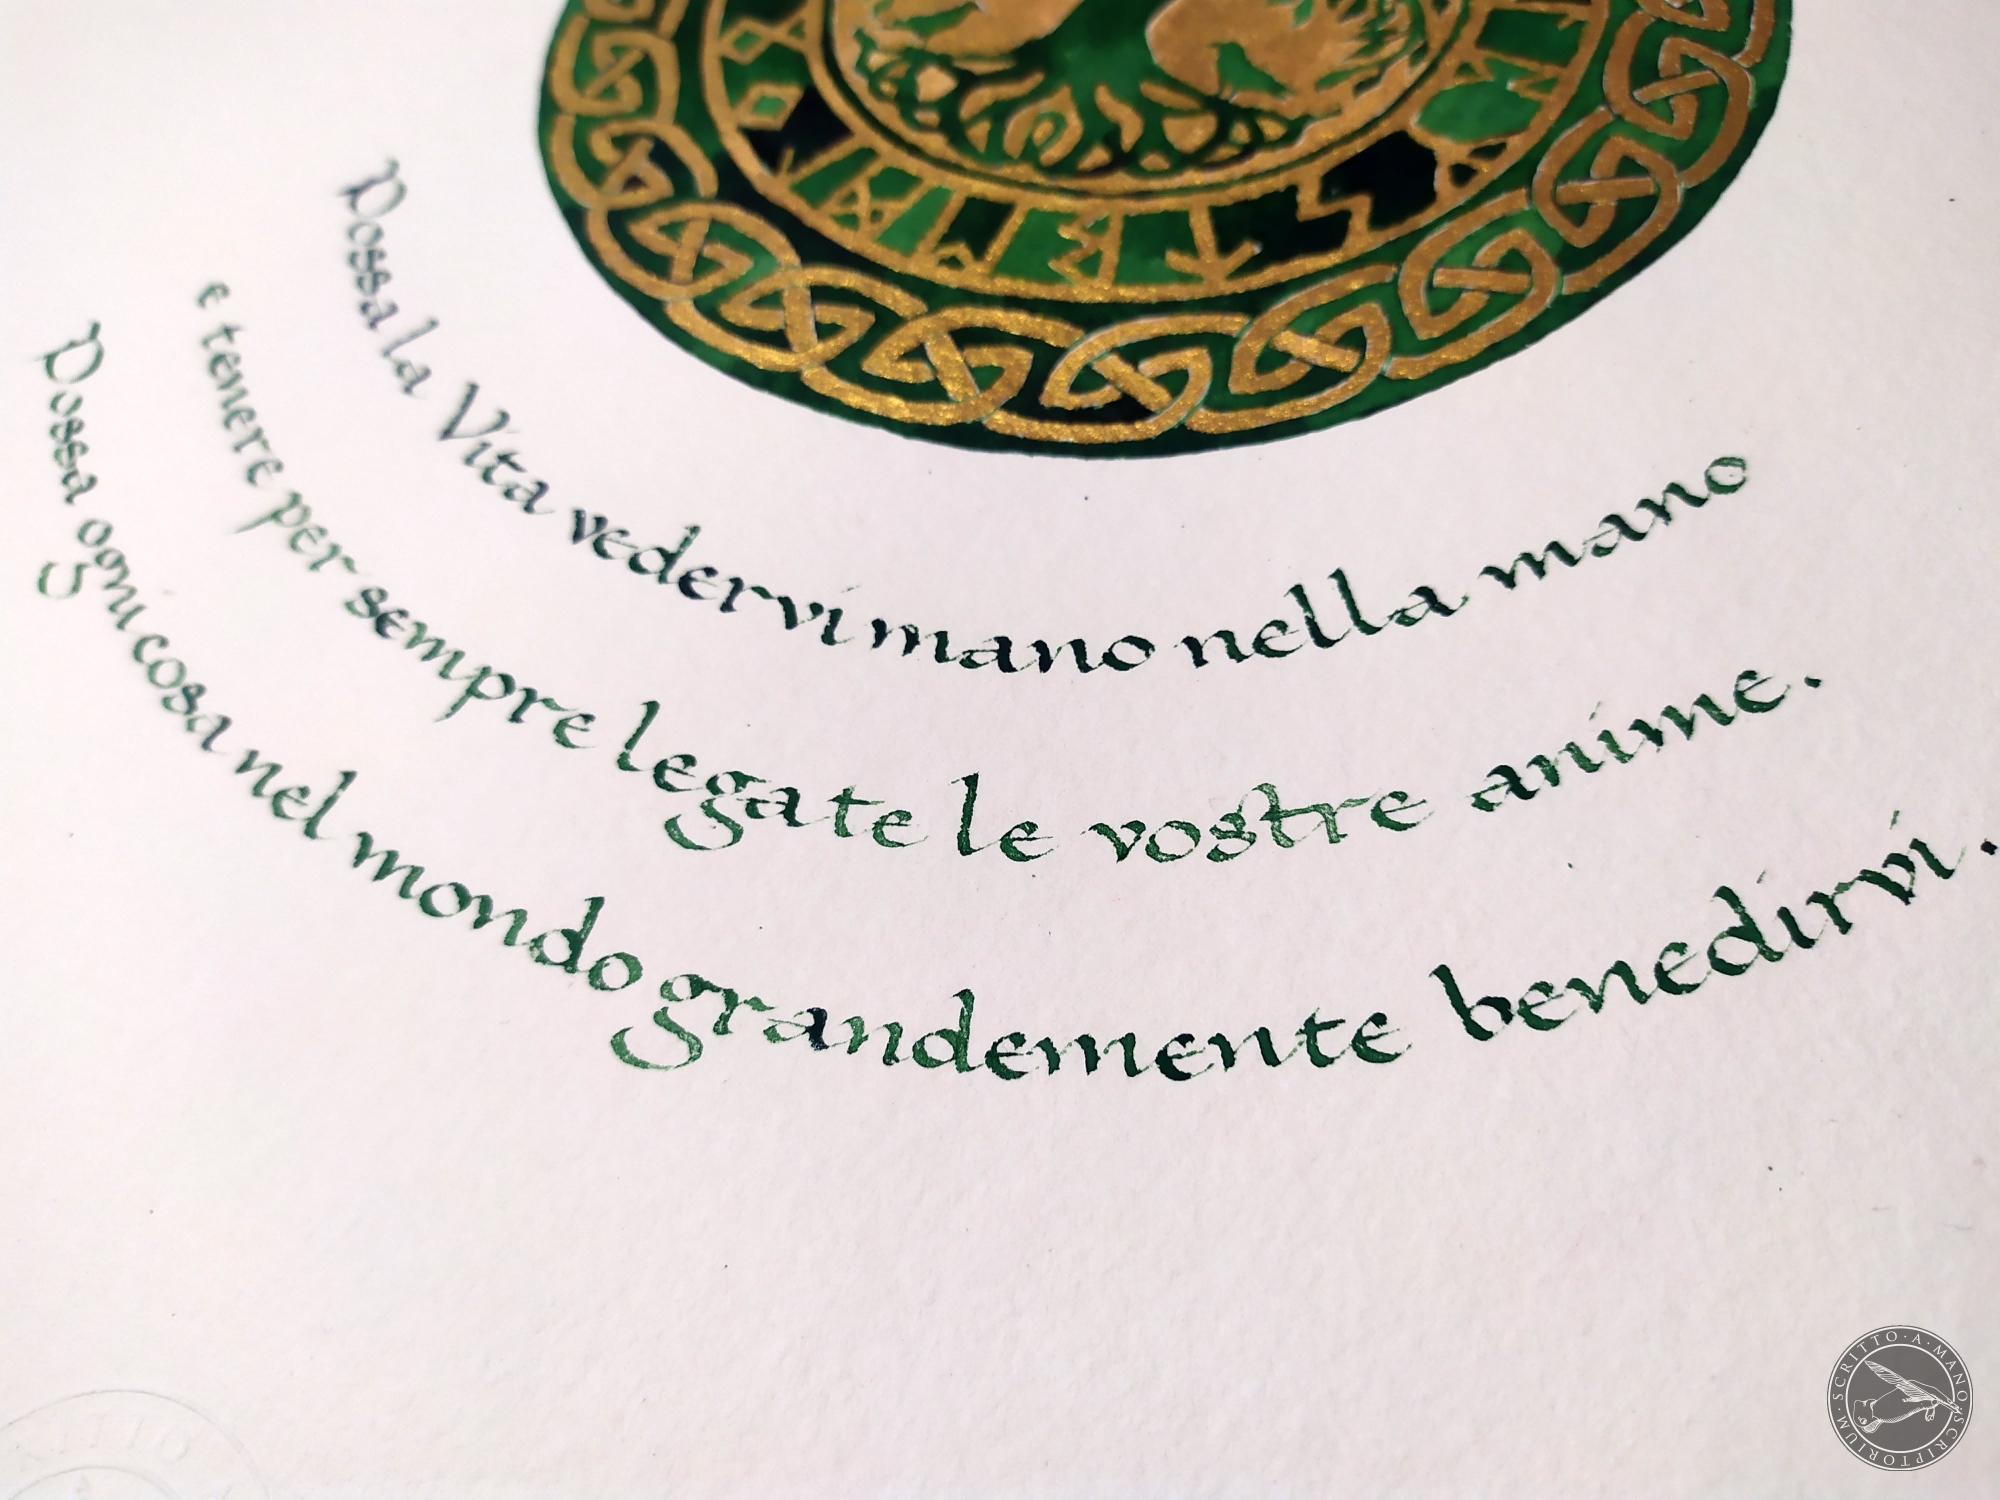 Possa la Vita vedervi mano nella mano
e tenere per sempre legate le vostre anime.
Possa ogni cosa nel mondo grandemente benedirvi.
SCRITTO · A · MANO · SCRIPTORIUM ·